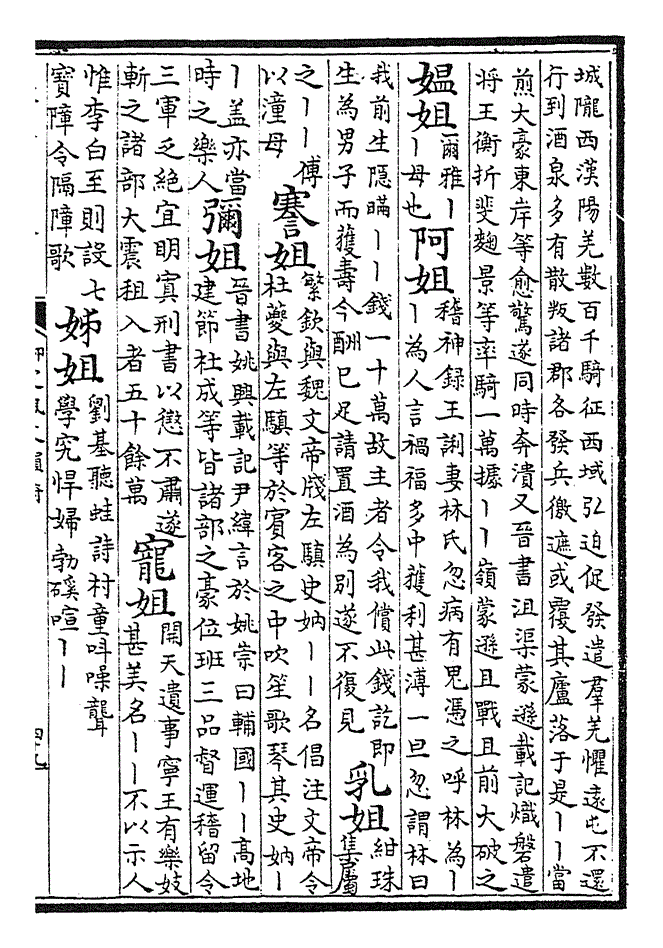 城隴西漢陽羌數百千騎征西域弘迫促發遣羣羌懼遠屯不還
行到酒泉多有散叛諸郡各發兵徼遮或覆其廬落于是丨丨當
煎大豪東岸等愈驚遂同時奔潰又晉書沮渠蒙遜載記熾磐遣
將王衡折斐麴景等率騎一萬據丨丨嶺蒙遜且戰且前大破之
媪姐
爾雅丨
丨母也
阿姐
稽神録王誗妻林氏忽病有鬼憑之呼林為丨
丨為人言禍福多中獲利甚溥一旦忽謂林曰
我前生隱瞞丨丨錢一十萬故主者令我償此錢訖即
生為男子而獲壽今酬已足請置酒為別遂不復見
乳姐
紺珠
集屬
之丨丨傅
以潼母
謇姐
繁欽與魏文帝牋左䮍史妠丨丨名倡注文帝令
杜夔與左䮍等於賓客之中吹笙歌琴其史妠丨
丨蓋亦當
時之樂人
彌姐
晉書姚興載記尹緯言於姚崇曰輔國丨丨高地
建節杜成等皆諸部之豪位班三品督運稽留令
三軍乏絕宜明寘刑書以懲不肅遂
斬之諸部大震租入者五十餘萬
寵姐
開天遺事寧王有樂妓
甚美名丨丨不以示人
惟李白至則設七
寶障令隔障歌
姊姐
劉基聽蛙詩村童呌噪聾
學究悍婦勃磎喧丨丨